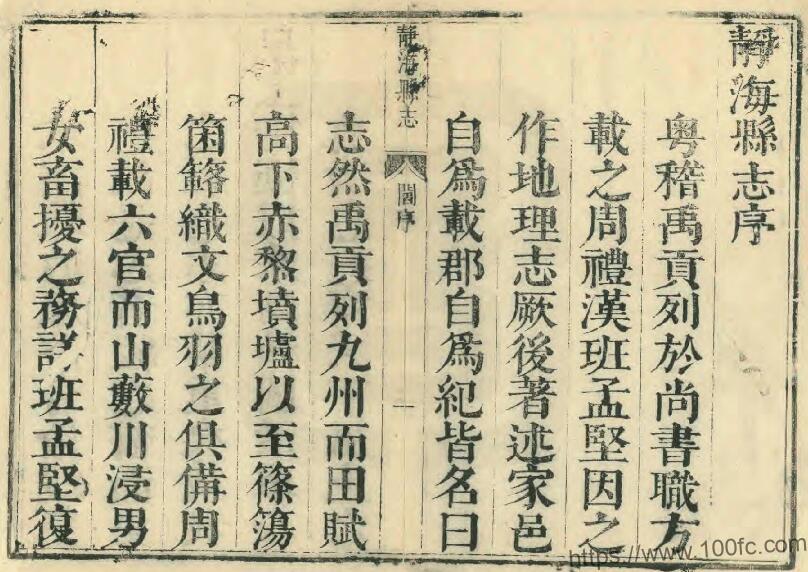 靜海縣志序
粵稽禹貢列於尚書職方
載之周禮漢班孟堅因之
作地理志厥後著述家邑
自爲載郡自爲紀皆名曰
靜海縣志
閻序
一
志然禹貢列九州而田賦
高下赤黎墳壚以至篠簜
箘簵織文鳥羽之俱備周
禮載六官而山藪川浸男
女畜擾之務詳班孟堅復
https://www.100fc.com